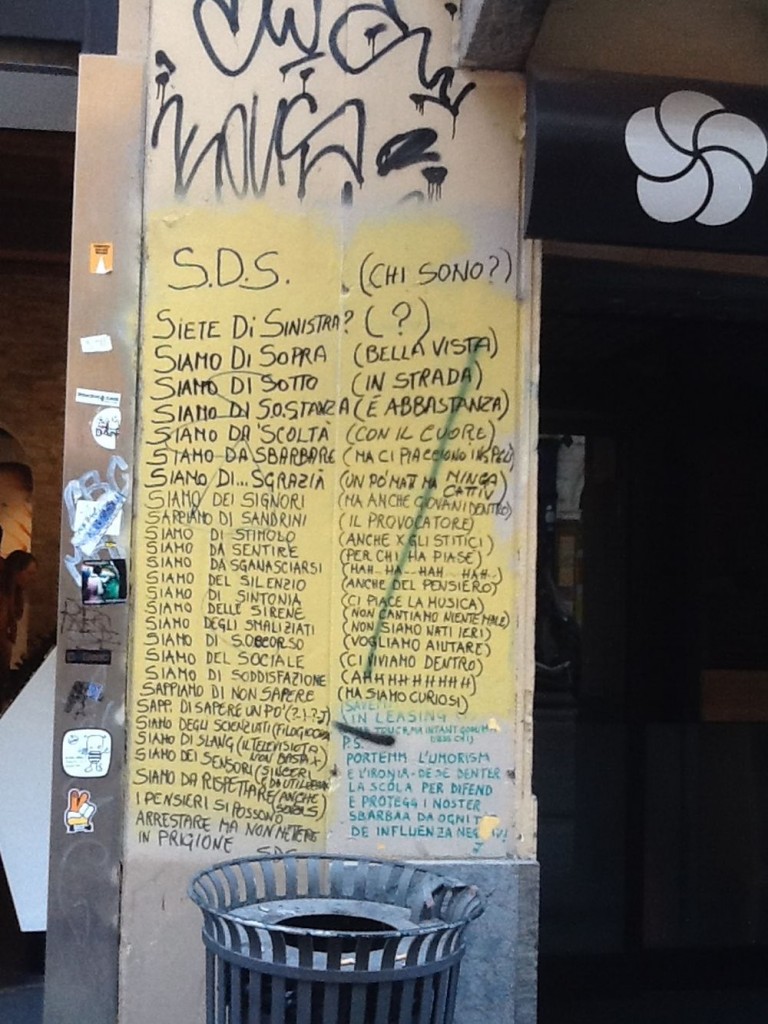 S.D.S. (CHI SONO?)
SIETE DI SINISTRA? (?)
SIAMO DI SOPRA (BELLA VISTA)
SIAMO DI SOTTO (IN STRADA)
SIAMO DI SOSTANZA (É ABBASTANZA)
SIAMO DA 'SCOLTÀ (CON IL CUORE)
SIAMO DA SBARBARE (MA CI PIACCIONO I
SIAMO DI... SGRAZIÀ (UN PÒ MATI MA MINGA CATTIV)
SIAMO DEI SIGNORI (MA ANCHE GIOVANI DENTRO)
SAPPIAMO DI SANDRINI (IL PROVOCATORE)
SIAMO DI STIMOLO (ANCHE X GLI STITICI)
SIAMO DA SENTIRE (PER CHI HA PIASE)
SIAMO DA SGANASCIARSI (HAH HA.. HAH.. HAH..)
SIAMO DEL SILENZIO (ANCHE DEL PENSIERO)
SIAMO DI SINTONIA (CI PIACE LA MUSICA)
SIAMO DELLE SIRENE (NON CANTIAMO NIENTE MALE)
SIAMO DEGLI SMALIZIATI (NON SIAMO NATI IERI)
SIAMO DI SOCCORSO (VOGLIAMO AIUTARE)
SIAMO DEL SOCIALE (CI VIVIAMO DENTRO)
SIAMO DI SODDISFAZIONE (AHHHHHHHHH)
SAPPIAMO DI NON SAPERE (MA SIAMO CURIOSI)
SAPP. DI SAPERE UN PO' (?-!-?-J)
SIAMO DEGLI SCIENZIATI
SIAMO DI SLANG (IL TELEVISIOTA NON BASTA X)
SIAMO DEI SENSORI (SINCERI
SIAMO DA RISPETTARE (ANCHE
I PENSIERI SI POSSONO
ARRESTARE MA NON METERE
IN PRIGIONE
S.D.S.
IN LEASING
P.S.
PORTEMM L'UMORISM
E L'IRONIA DE SE DENTER
LA SCOLA PER DIFEND
E PROTEGG I NOSTER
SBARBAA DA OGNI
DE INFLUENZA